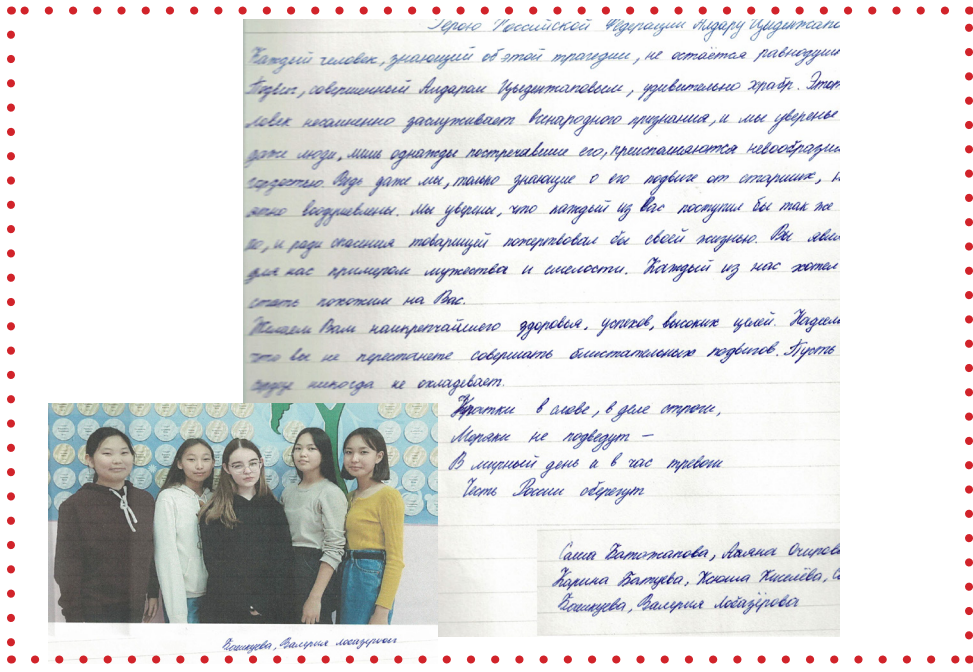 Герою Российской Федерации Алдару Цыденжапо
Каждый человек, знающий об этой трагедии, не остаётся равнодушн
Подвиг, совершенный Алдаром Цыденжаповым, удивительно храбр. Этот
ловек несомненно заслуживает всенародного признания, и мы уверены
даже люди, лишь однажды повстречавшие его, преисполняются невообразим
гордостью. Ведь даже мы, только знающие о его подвиге от старших,
ятно воодушевлены. Мы уверены, что каждый из Вас поступил бы так же
но, и ради спасения товарищей пожертвовал бы своей жизнью. Вы явля
для нас примером мужества и смелости. Каждый из нас хотел
стать похожим на Вас.
Желаем Вам наикрепчайшего здоровья, успехов, высоких целей. Надеем
что вы не перестанете совершать блистательных подвигов. Пусть
сердце никогда не охладевает.
Кратки в слове, в деле строги,
Моряки не подведут —
В мирный день а в час тревоги
Честь России оберегут
Саша Батожапова, Аяна Очирова
Карина Батуева, Ксюша Киселёва, С
Башкуева, Валерия Лобазёрова
Башкуева, Валерия Лобазёрова